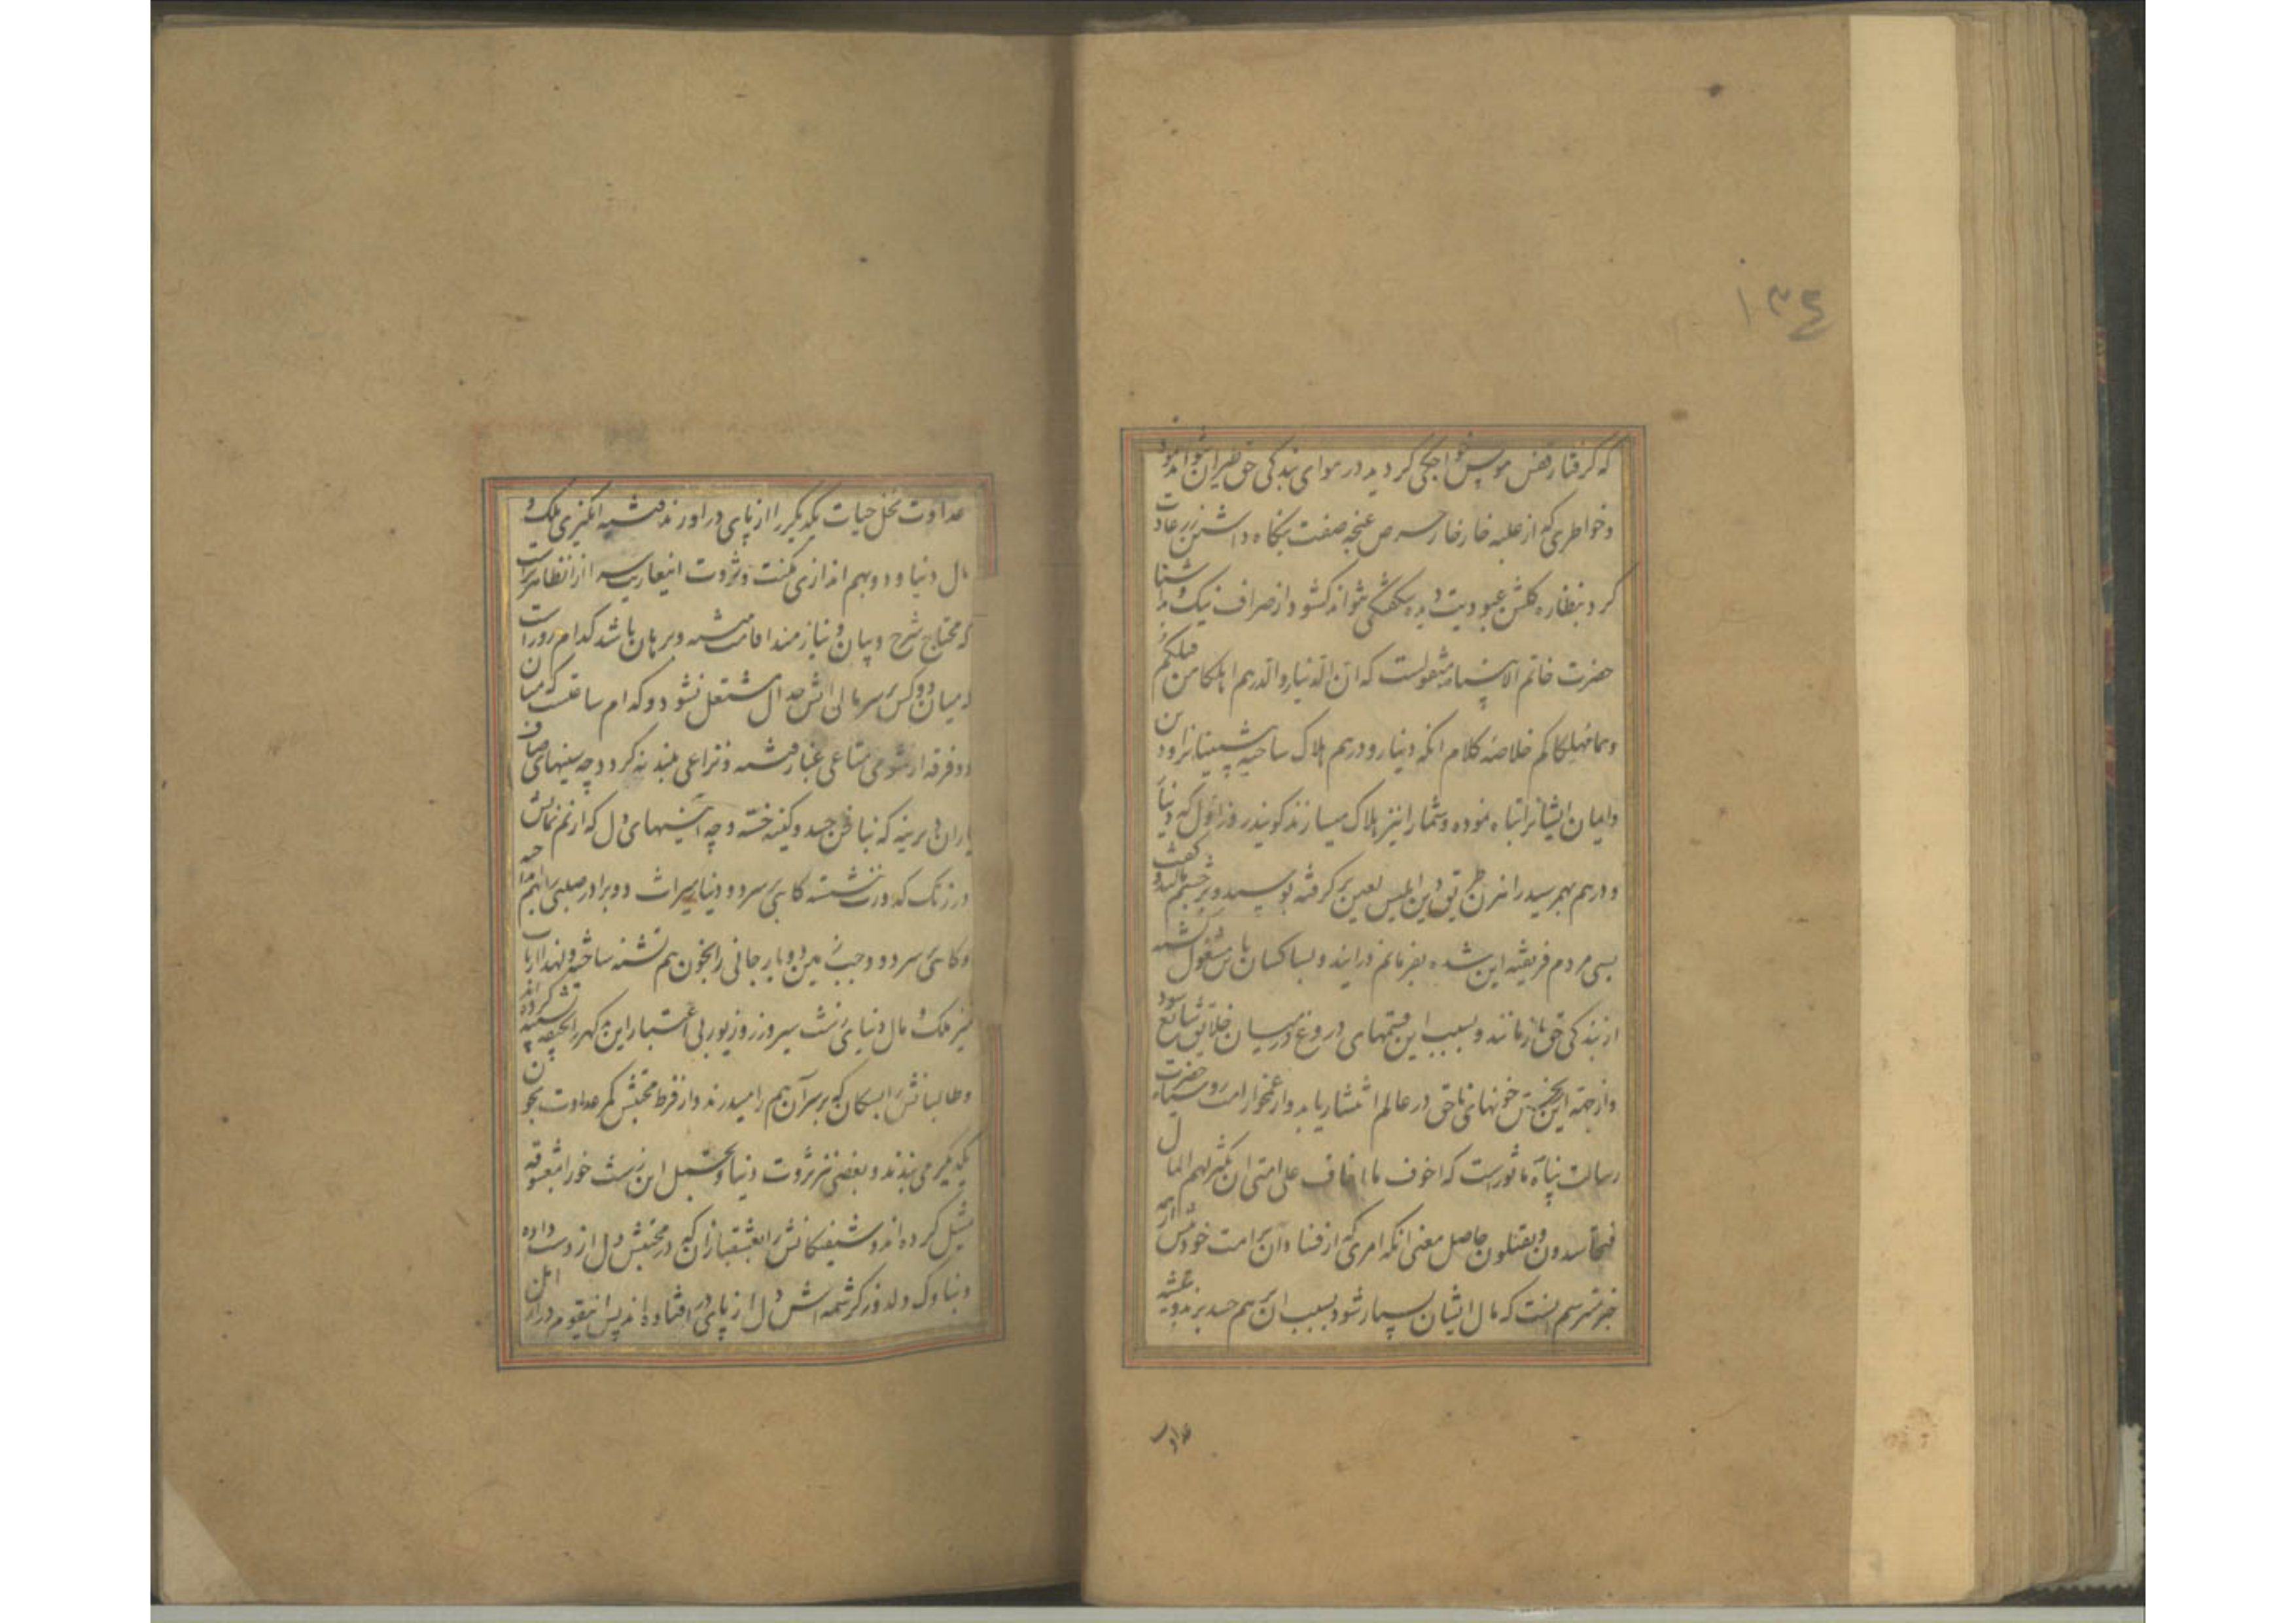 ۱۳٤
که گرفتار قفس هوس خواجگی گردید در هوای بندگی حق طیران نتواند نمود
و خواطری که از غلبه خار خار حرص غنچه صفت بنگاه داشتن زر عادت
کرد بنظاره گلشن عبودیت دیده شکفتگی نتواند کشود و از صراف نیک و بد شنا
حضرت خاتم الانبیاء منقولست که ان الدینار والدرهم اهلکا من قبلکم
وهما مهلکاکم خلاصه کلام انکه دینار و درهم هلاک ساخته پیشینیانرا و دین
و ایمان ایشانرا تباه نموده و شمارا نیز هلاک میسازند گویند روز اول که دینار
و درهم بهم رسید رهزن طریق دین ابلیس لعین برگرفته بوسید و بر چشم مالید و گفت
بسی مردم فریفته این شده بفرمانم درایند و بسا کسان باین مشغول گشته
از بندگی حق بازمانند و بسبب این قسمهای دروغ در میان خلایق شائع شود
و از جهة این خونهای ناحق در عالم انتشار یابد و از غمخوار امت حضرت
رسالت پناه ماثورست که اخوف ما اخاف علی امتی ان یکثر لهم المال
فیتحاسدون ویقتلون حاصل معنی انکه امری که از فساد آن بر امت خود بیش از همه
چیز میترسم اینست که مال ایشان بسیار شود بسبب ان بر هم حسد برند و تیشه
عداوت
عداوت نخل حیات یکدیگر را از پای دراورند فتنه انگیزی ملک و
مال دنیا و دوبهم اندازی مکنت و ثروت اینعاریت سرا از ان ظاهرترست
که محتاج شرح و بیان و نیازمند اقامت بینه و برهان باشد کدام روز است
که میان دو کس بر سر مالی اتش جدال مشتعل نشود و کدام ساعتست که میان
دو فرقه از شومی متاعی غبار فتنه و نزاعی بلند نه گردد چه سینهای صاف
یاران دیرینه که بناخن حسد و کینه خسته و چه آئینهای دل که از نم نمایش
در زنگ کدورت نشسته گاهی بر سر دو دینار میراث دو برادر صلبی را از هم جدا
و گاهی بر سر دو وجب زمین دو یار جانی را بخون هم تشنه ساخته و لهذا ارباب
تمیز ملک و مال دنیای زشت سیر و زر و زیور بی اعتبار این بد گهر را بجیفه تشبیه کرده اند
و طالبانش را بسگان که بر سر آن هم را میدرند و از فرط محبتش کمر عداوت بخون
یکدیگر می بندند و بعضی نیز ثروت دنیا و تجمل این زشت خو را بمعشوقه
تمثیل کرده اند و شیفتگانش را بعشقبازان که در محبتش دل از دست داده
و بناوک دلدوز کرشمه اش دل از پای در افتاده اند پس اینقوم دراز امل